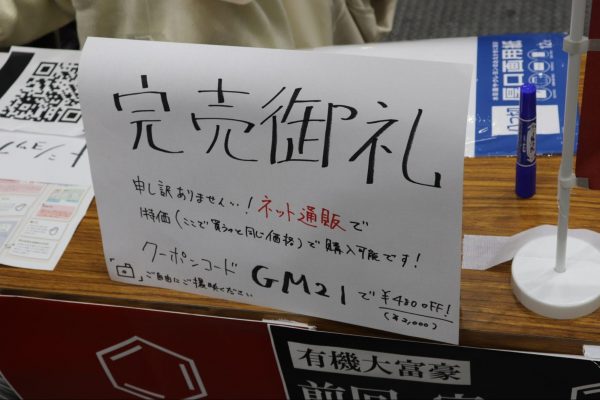 完売御礼
申し訳ありません…!ネット通販で
特価(ここで買うのと同じ価格)で購入可能です!
クーポンコード GM21で¥480OFF!
(¥2,000)
「📷」ご自由にご撮影ください
厚口画用紙
有機大富豪